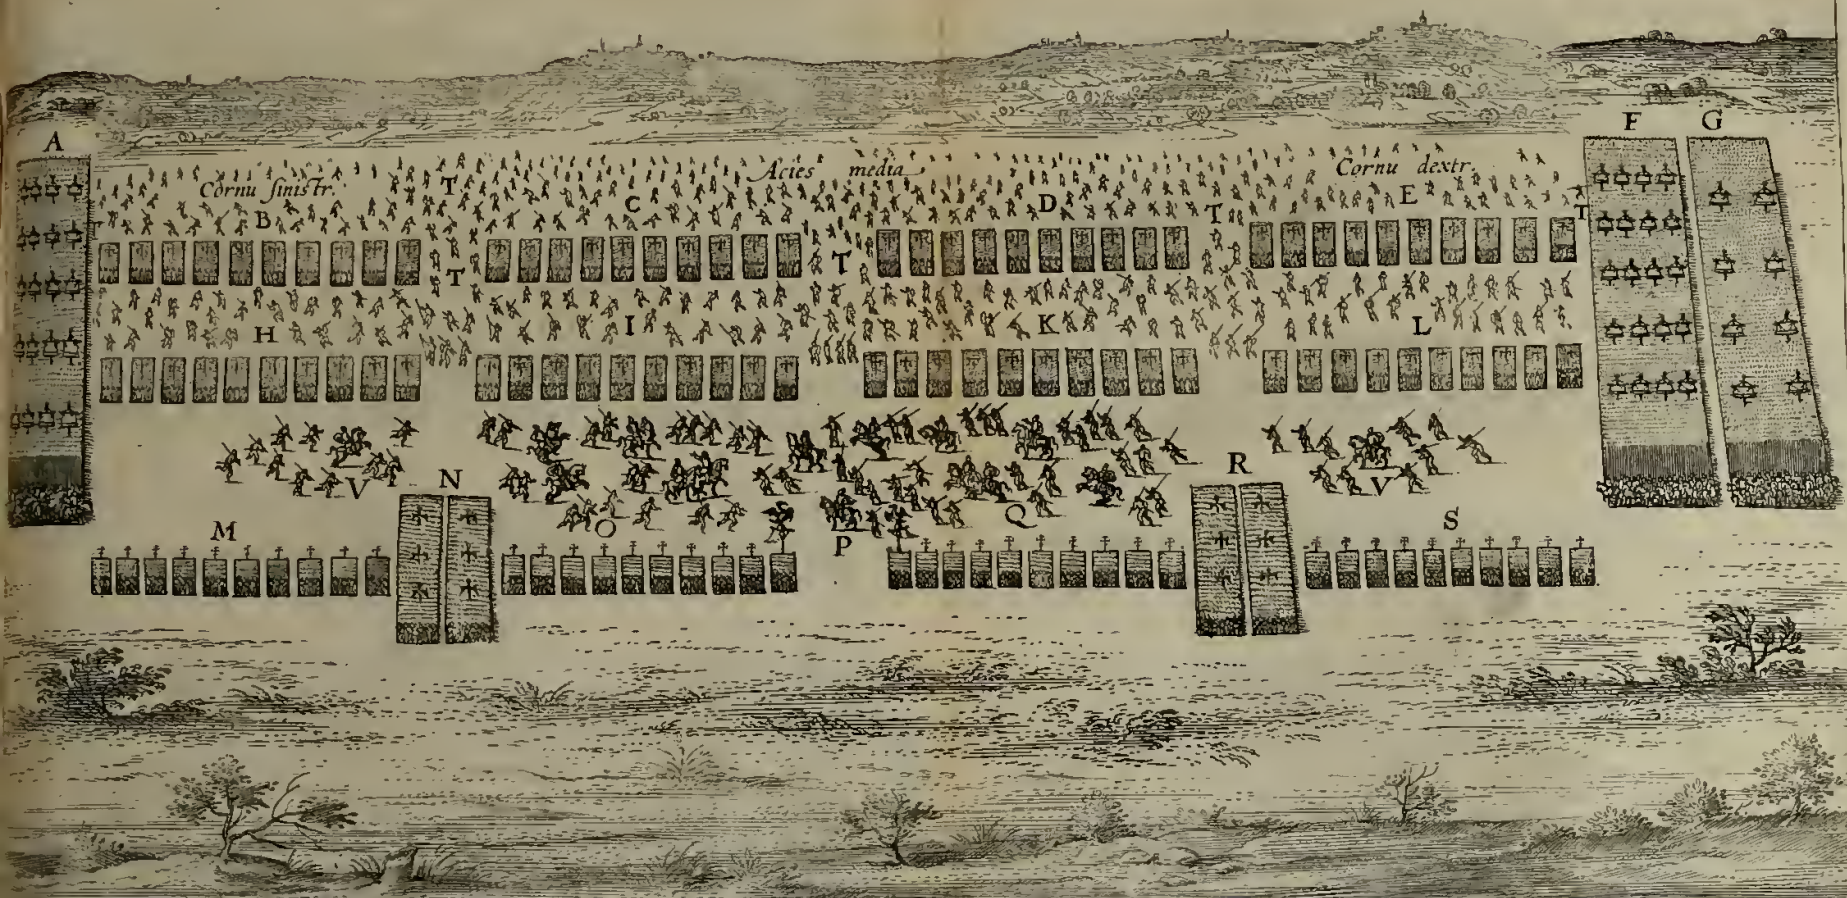 F G
A
Cornu sinistr. T Acies media Cornu dextr.
B C D E T T
T T
H I K L
V N R V
M O P Q S